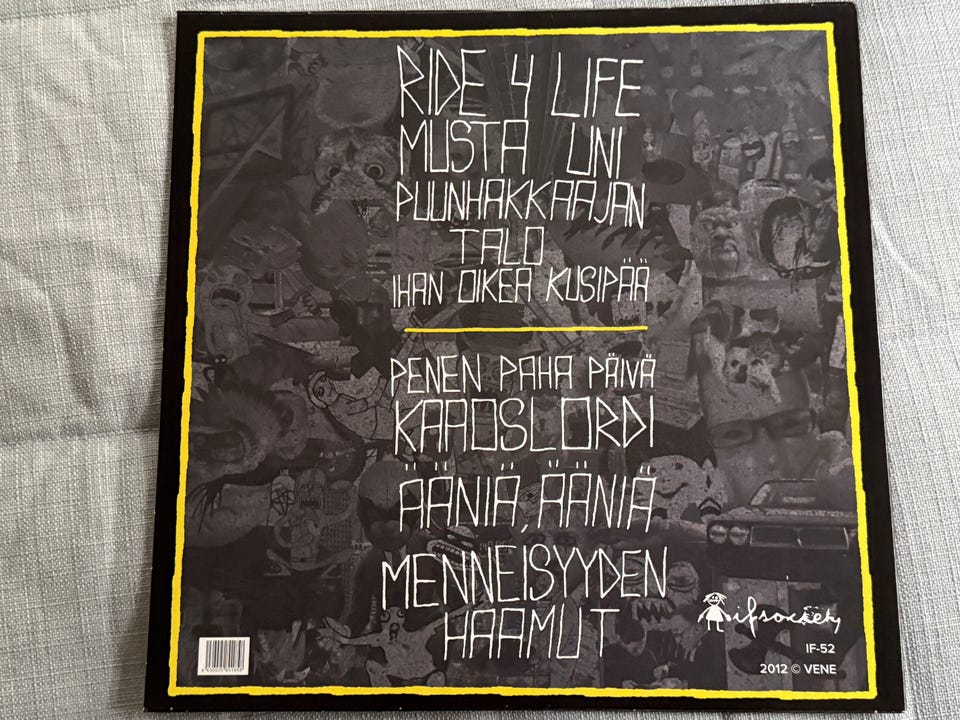 RIDE 4 LIFE
MUSTA UNI
PUUNHAKKAAJAN
TALO
IHAN OIKEA KUSIPÄÄ
PENEN PAHA PÄIVÄ
KAAOSLORDI
ÄÄNIÄ, ÄÄNIÄ
MENNEISYYDEN
HAAMUT
ifsociety
IF-52
2012 © VENE